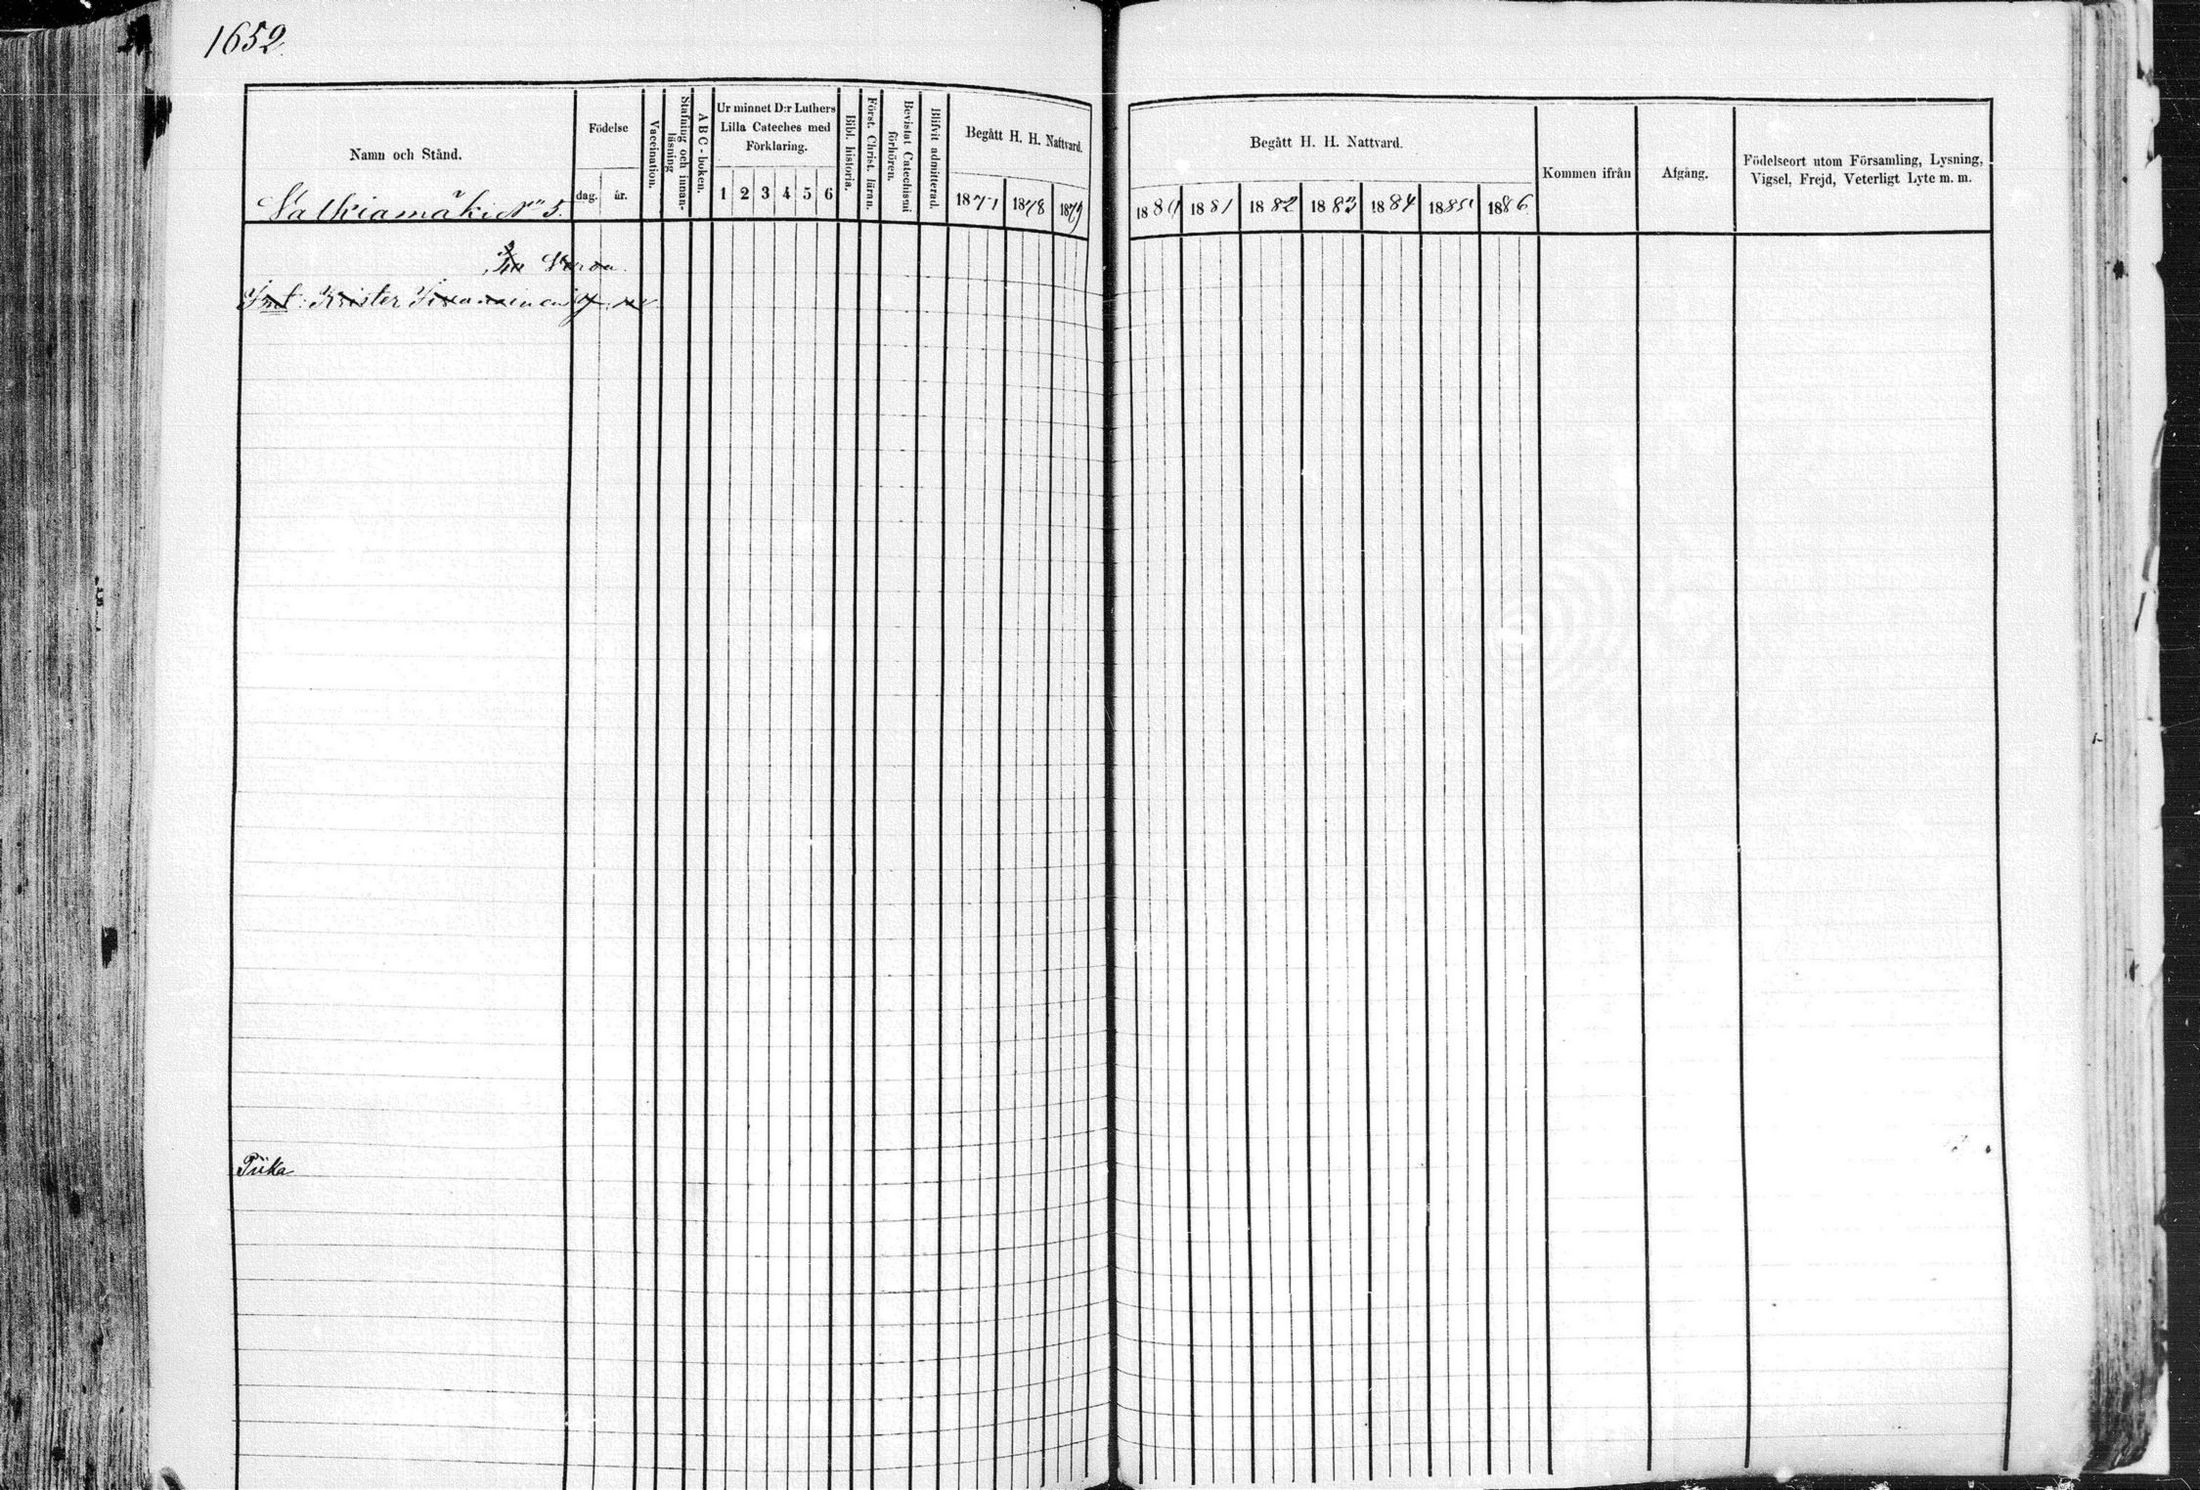 1652.
Namn och Stånd.
Valkiamäki N:o 5.
Födelse
dag.
år.
Vaccination.
Stafning och innan-
läsning
A B C - boken.
Ur minnet D:r Luthers
Lilla Cateches med
Förklaring.
1 2 3 4 5 6
Bibl. historia.
Först. Christ. läran.
Bevistat Catechismi
förhören.
Blifvit admitterad.
Begått H. H. Nattvard.
1877 1878 1879
Begått H. H. Nattvard.
1880 1881 1882 1883 1884 1885 1886
Kommen ifrån
Afgång.
Födelseort utom Församling, Lysning,
Vigsel, Frejd, Veterligt Lyte m. m.
Inh: Krister
Piika